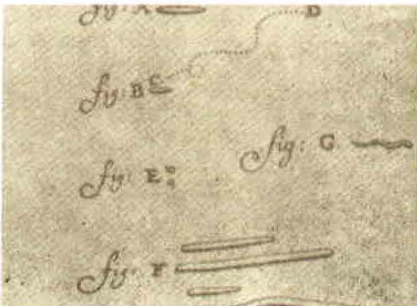 fig: A
D
fig: B C
fig: G
fig: E
fig: F